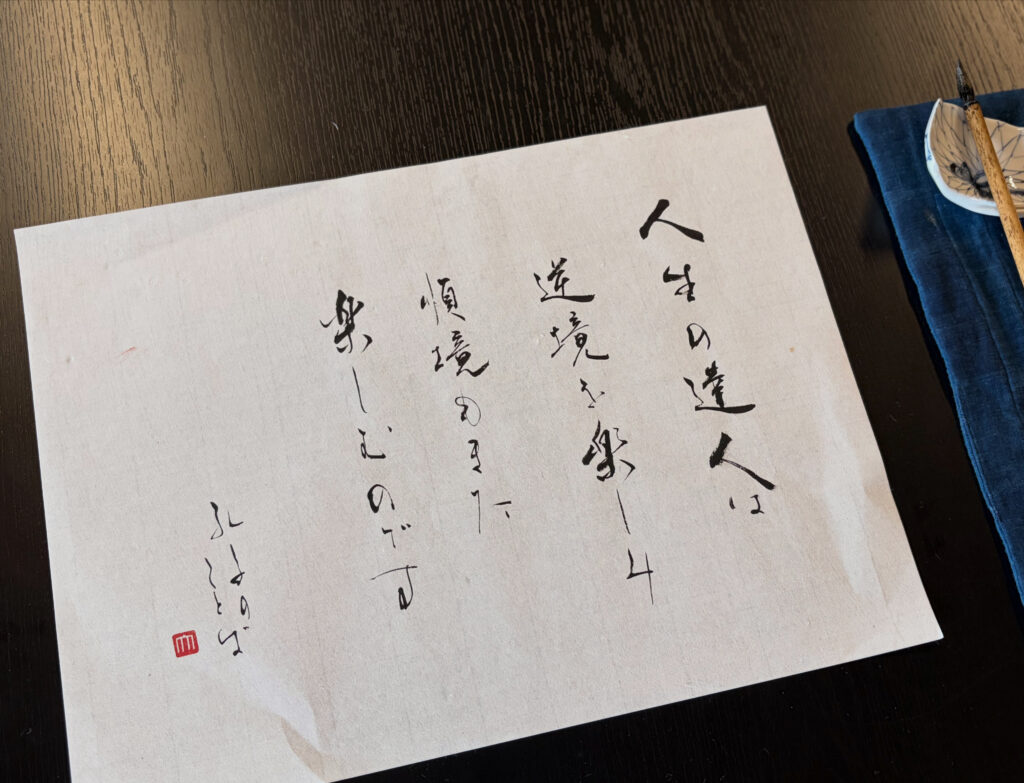 人生の達人は
逆境を楽しみ
順境もまた
楽しむのです
孔子の
ことば